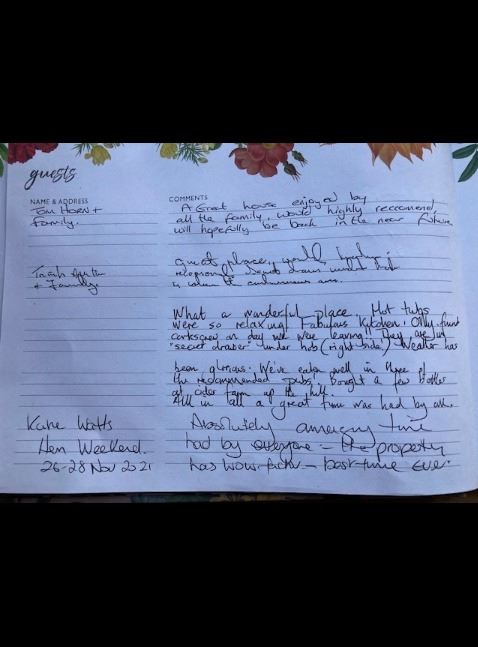 guests
NAME & ADDRESS
COMMENTS
Tom Horn +
Family.
A Great house enjoyed by
all the family, would highly reccomend
will hopefully be back in the near future
Trish
+ Family.
Great place, well
What a wonderful place. Hot tubs
were so relaxing. Fabulous kitchen. Only found
corkscrew on day we were leaving. They are in
"secret drawer" under hob (right side). Weather has
been glorious. We've eaten well in three of
the recommended pubs, bought a few bottles
at cider farm up the hill.
All in all a great time was had by all.
Kate Watts
Hen Weekend.
26-28 Nov 2021
Absolutely amazing time
had by everyone - the property
has wow factor - best time ever.